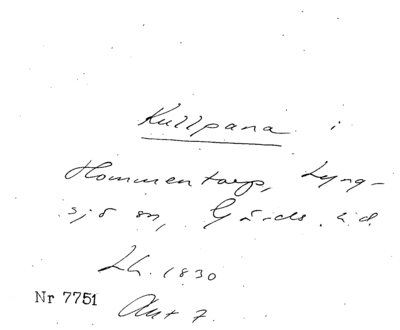 Kullpana i
Hommentorp, Lyng-
sjö sn, Gärds hd.
Lh. 1830
Nr 7751
Akt 7.